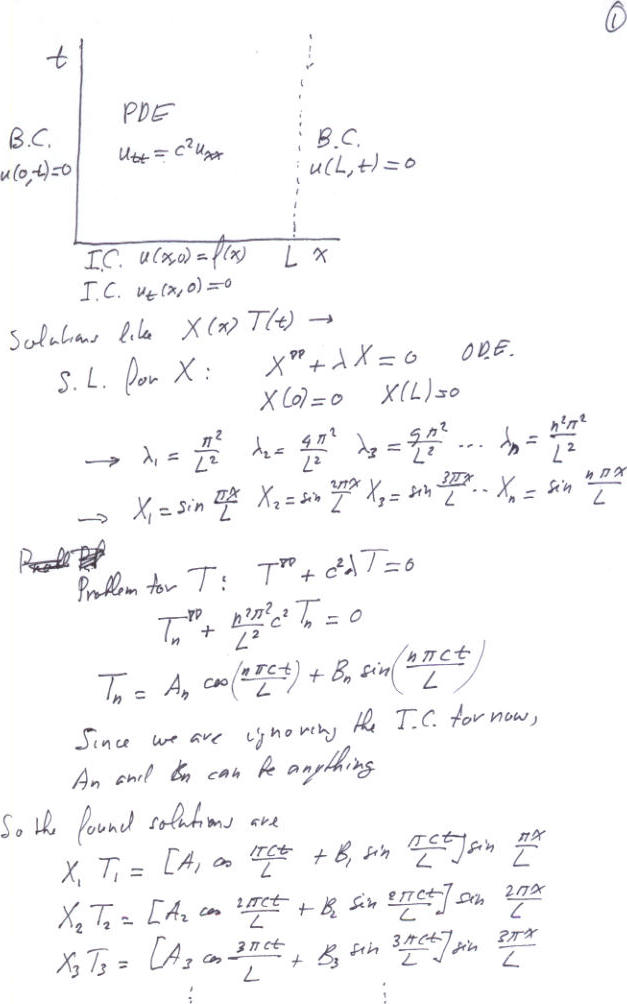 ①
t
PDE
B.C.
B.C.
u_tt = c²u_xx
u(0,t)=0
u(L,t)=0
I.C. u(x,0) = f(x) L x
I.C. u_t(x,0)=0
Solutions like X(x) T(t) →
S.L. for X: X'' + λX = 0 O.D.E.
X(0)=0 X(L)=0
→ λ₁ = π²/L² λ₂ = 4π²/L² λ₃ = 9π²/L² ... λₙ = n²π²/L²
→ X₁ = sin πx/L X₂ = sin 2πx/L X₃ = sin 3πx/L .. Xₙ = sin nπx/L
Problem for T: T'' + c²λT = 0
Tₙ'' + n²π²/L² c² Tₙ = 0
Tₙ = Aₙ cos(nπct/L) + Bₙ sin(nπct/L)
Since we are ignoring the I.C. for now,
An and Bn can be anything
So the found solutions are
X₁ T₁ = [A₁ cos πct/L + B₁ sin πct/L] sin πx/L
X₂ T₂ = [A₂ cos 2πct/L + B₂ sin 2πct/L] sin 2πx/L
X₃ T₃ = [A₃ cos 3πct/L + B₃ sin 3πct/L] sin 3πx/L
⋮ ⋮